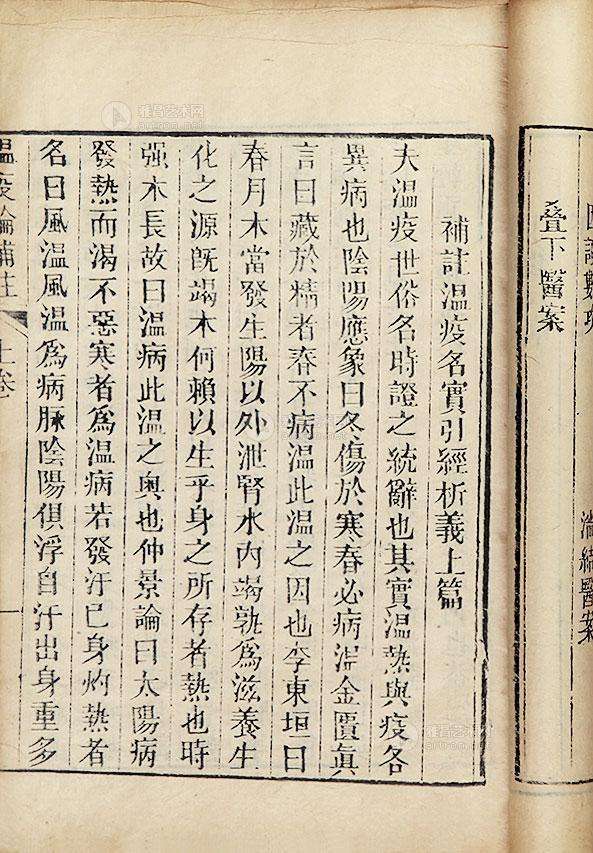 叠下醫案
補註溫疫名實引經析義上篇
夫溫疫世俗名時證之統辭也其實溫熱與疫各
異病也陰陽應象曰冬傷於寒春必病温金匱眞
言曰藏於精者春不病溫此溫之因也李東垣曰
春月木當發生陽以外泄腎水内竭孰爲滋養生
化之源既竭木何賴以生乎身之所存者熱也時
强木長故曰溫病此溫之奥也仲景論曰太陽病
發熱而渴不惡寒者爲溫病若發汗已身灼熱者
名曰風溫風溫爲病脉陰陽俱浮自汗出身重多
溫疫論補註
上卷
一
雅昌艺术网
artron.net